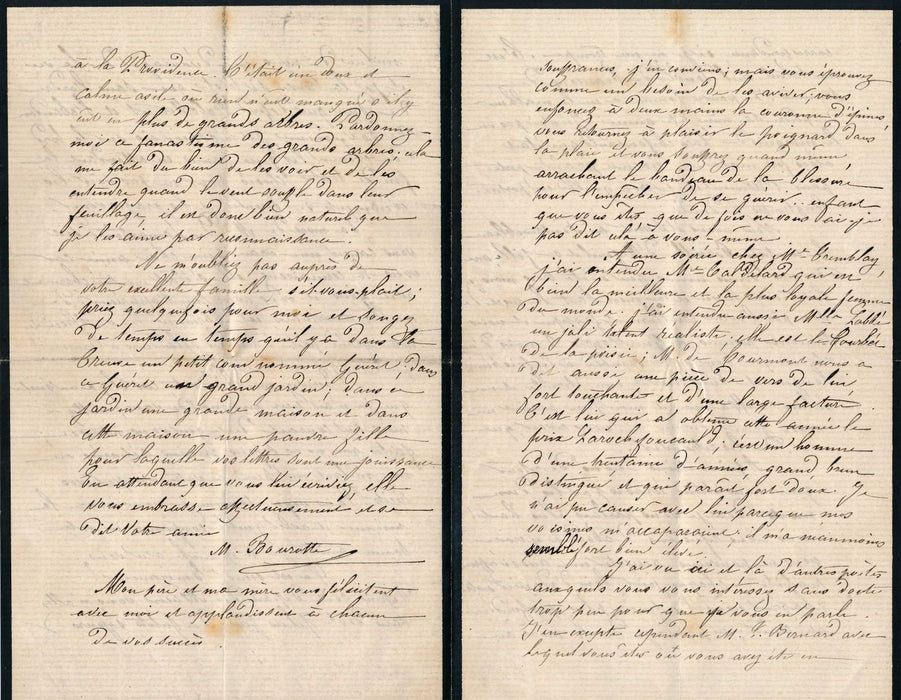 à la Providence. C'était un doux et
calme asile où rien n'eut manqué s'il y
eut eu plus de grands arbres. Pardonnez-
moi ce fanatisme des grands arbres; cela
me fait du bien de les voir et de les
entendre quand le vent souffle dans leur
feuillage, il est donc bien naturel que
je les aime par reconnaissance.
Ne m'oubliez pas auprès de
votre excellente famille s'il vous plait;
priez quelquefois pour moi et songez
de temps en temps qu'il y a dans la
Creuse un petit coin nommé Guéret, dans
ce Guéret un grand jardin; dans ce
jardin une grande maison et dans
cette maison une pauvre fille
pour laquelle vos lettres sont une jouissance
En attendant que vous lui écriviez, elle
vous embrasse affectueusement et se
dit votre amie
M. Bourotte
Mon père et ma mère vous félicitent
avec moi et applaudissent à chacun
de vos succès.
souffrances, j'en conviens; mais vous éprouvez
comme un besoin de les aviver; vous
enfoncez à deux mains la couronne d'épines
vous retournez à plaisir le poignard dans
la plaie et vous souffrez quand même
arrachant le bandeau de la blessure
pour l'empêcher de se guérir.. enfant
que vous êtes que de fois ne vous ai-je
pas dit cela à vous-même.
A une soirée chez Me Tremblay
j'ai entendu Me qui est
bien la meilleure et la plus loyale femme
du monde. j'ai entendu aussi Melle Labbé
un joli talent réaliste. elle est le Courbet
de la poésie; M. de Gourmont nous a
dit aussi une pièce de vers de lui
fort touchante et d'une large facture.
C'est lui qui a obtenu cette année le
prix Larochefoucauld; c'est un homme
d'une trentaine d'années, grand brun
distingué et qui paraît fort doux. Je
n'ai pu causer avec lui parceque mes
voisines m'accaparaient il m'a néanmoins
semblé fort bien élevé.
J'ai vu ici et là d'autres poètes
auxquels vous vous intéressez sans doute
trop peu pour que je vous en parle.
J'en excepte cependant M. T. Bernard avec
lequel vous êtes où vous avez été en